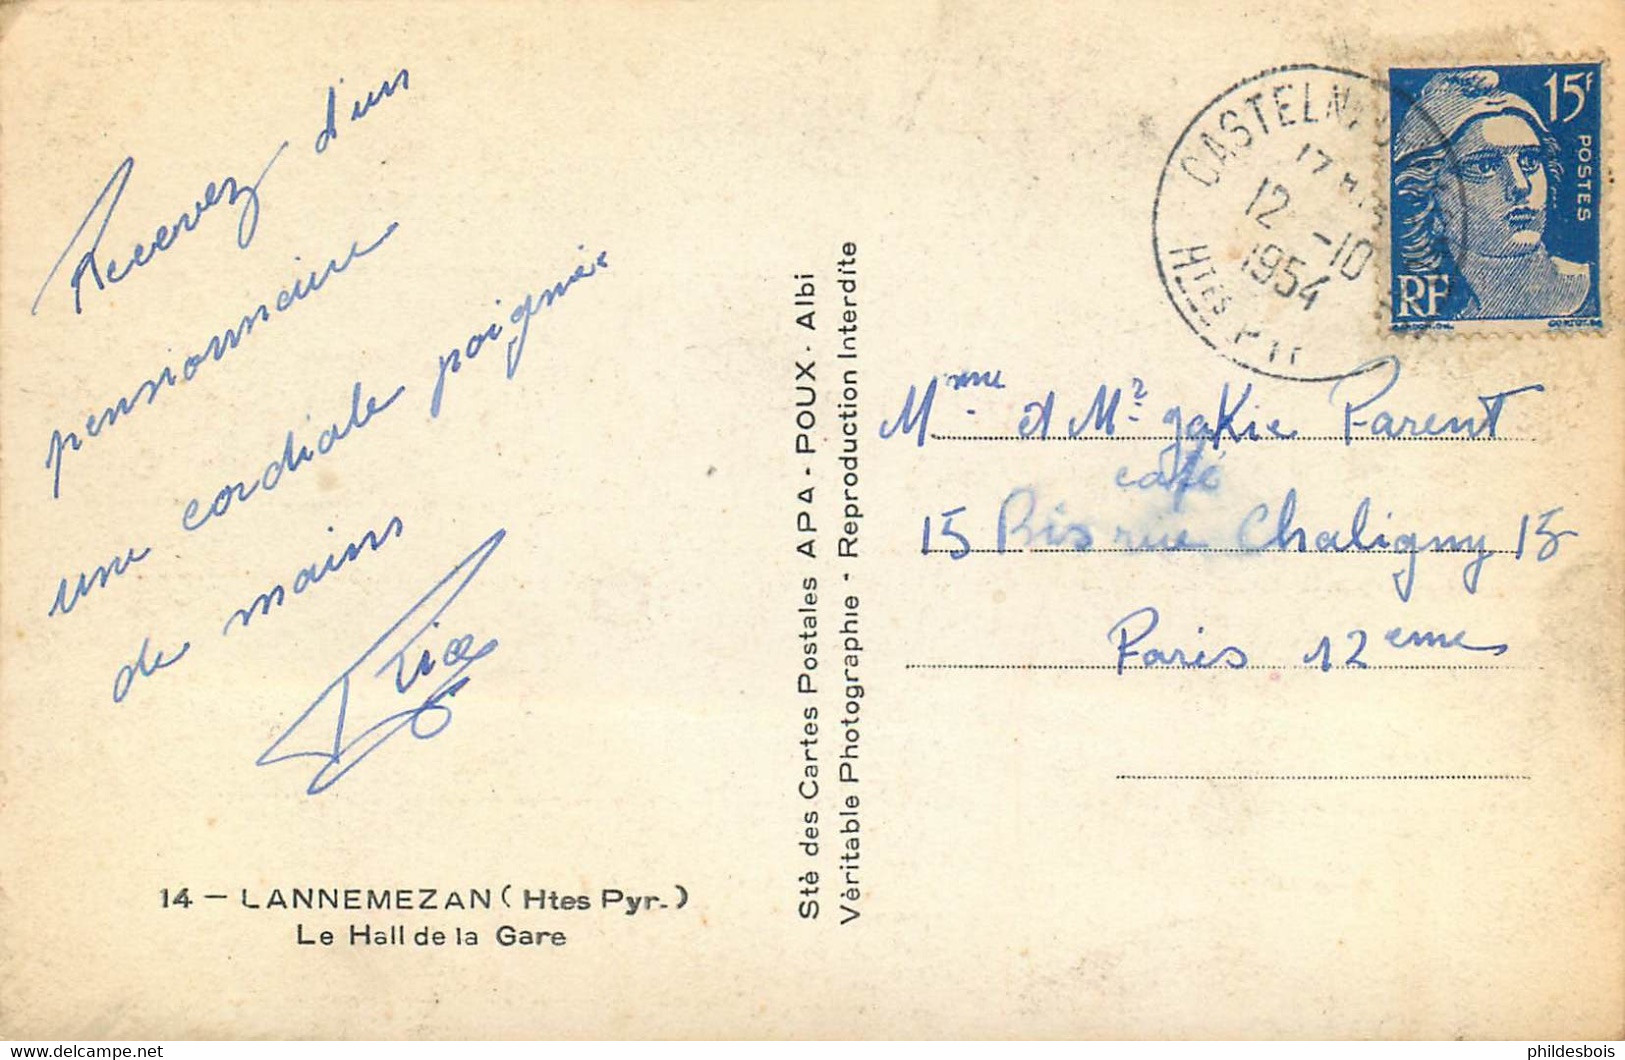 Recevez d'un
pensionnaire
une cordiale poignée
de mains
14 - LANNEMEZAN (Htes Pyr.)
Le Hall de la Gare
Sté des Cartes Postales APA - POUX - Albi
Véritable Photographie - Reproduction Interdite
CASTELNAU
17 H
12 -10
1954
Htes PYR
15F
POSTES
RF
Mme et Mr Jakie Parent
café
15 Bis rue Chaligny 15
Paris 12eme
phildesbois